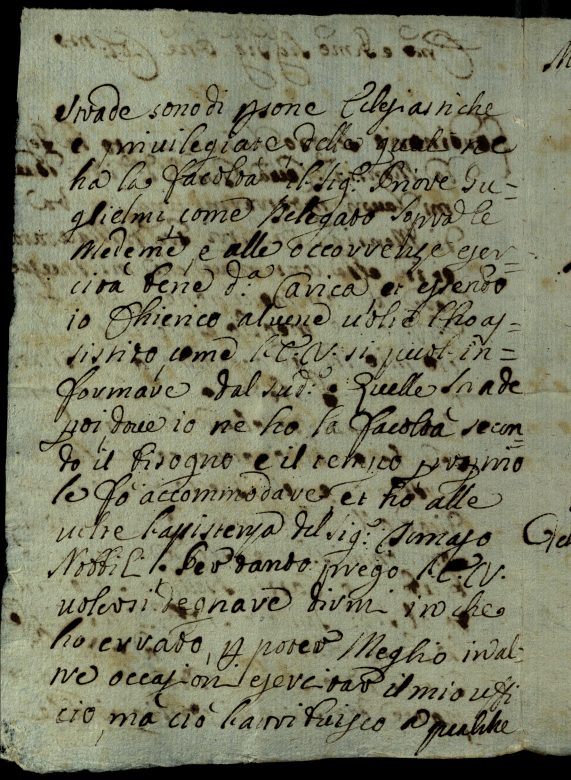 strade sono di psone Eclegiastiche
e privilegiate delle quali ne
ha la facoltà il sig.r Priore Gu=
glielmi come Delegato sopra le
medeme, e alle occorrenze eser=
cita bene d.a Carica et essendo
io Thienco alcune volte l'ho as=
sistito, come la E. V. si puol in=
formare dal sud.o Quelle strade
poi, dove io ne ho la facoltà secon=
do il bisogno e il tempo proprio
le fò accommodare et ho alle
volte l'assistenza del sig.r Tomaso
Nobbili. Per tanto prego la E. V.
volersi degnare dirmi in che
ho errato, p poter Meglio in al=
tre occasion esercitar il mio uffi
cio, mà ciò l'attribuisco a qualche